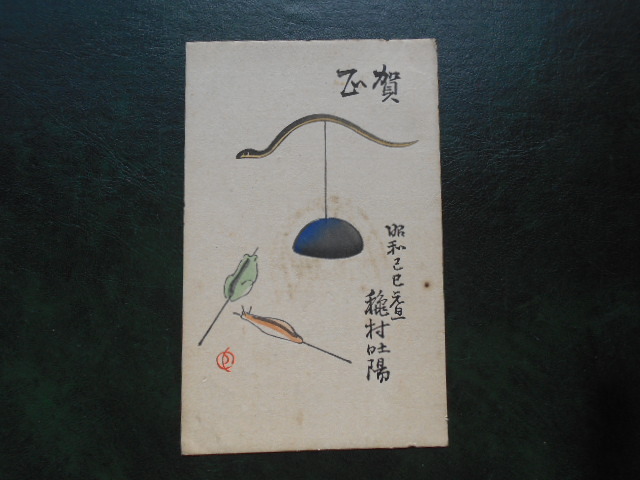 賀正
昭和己巳元旦
穐村吐陽